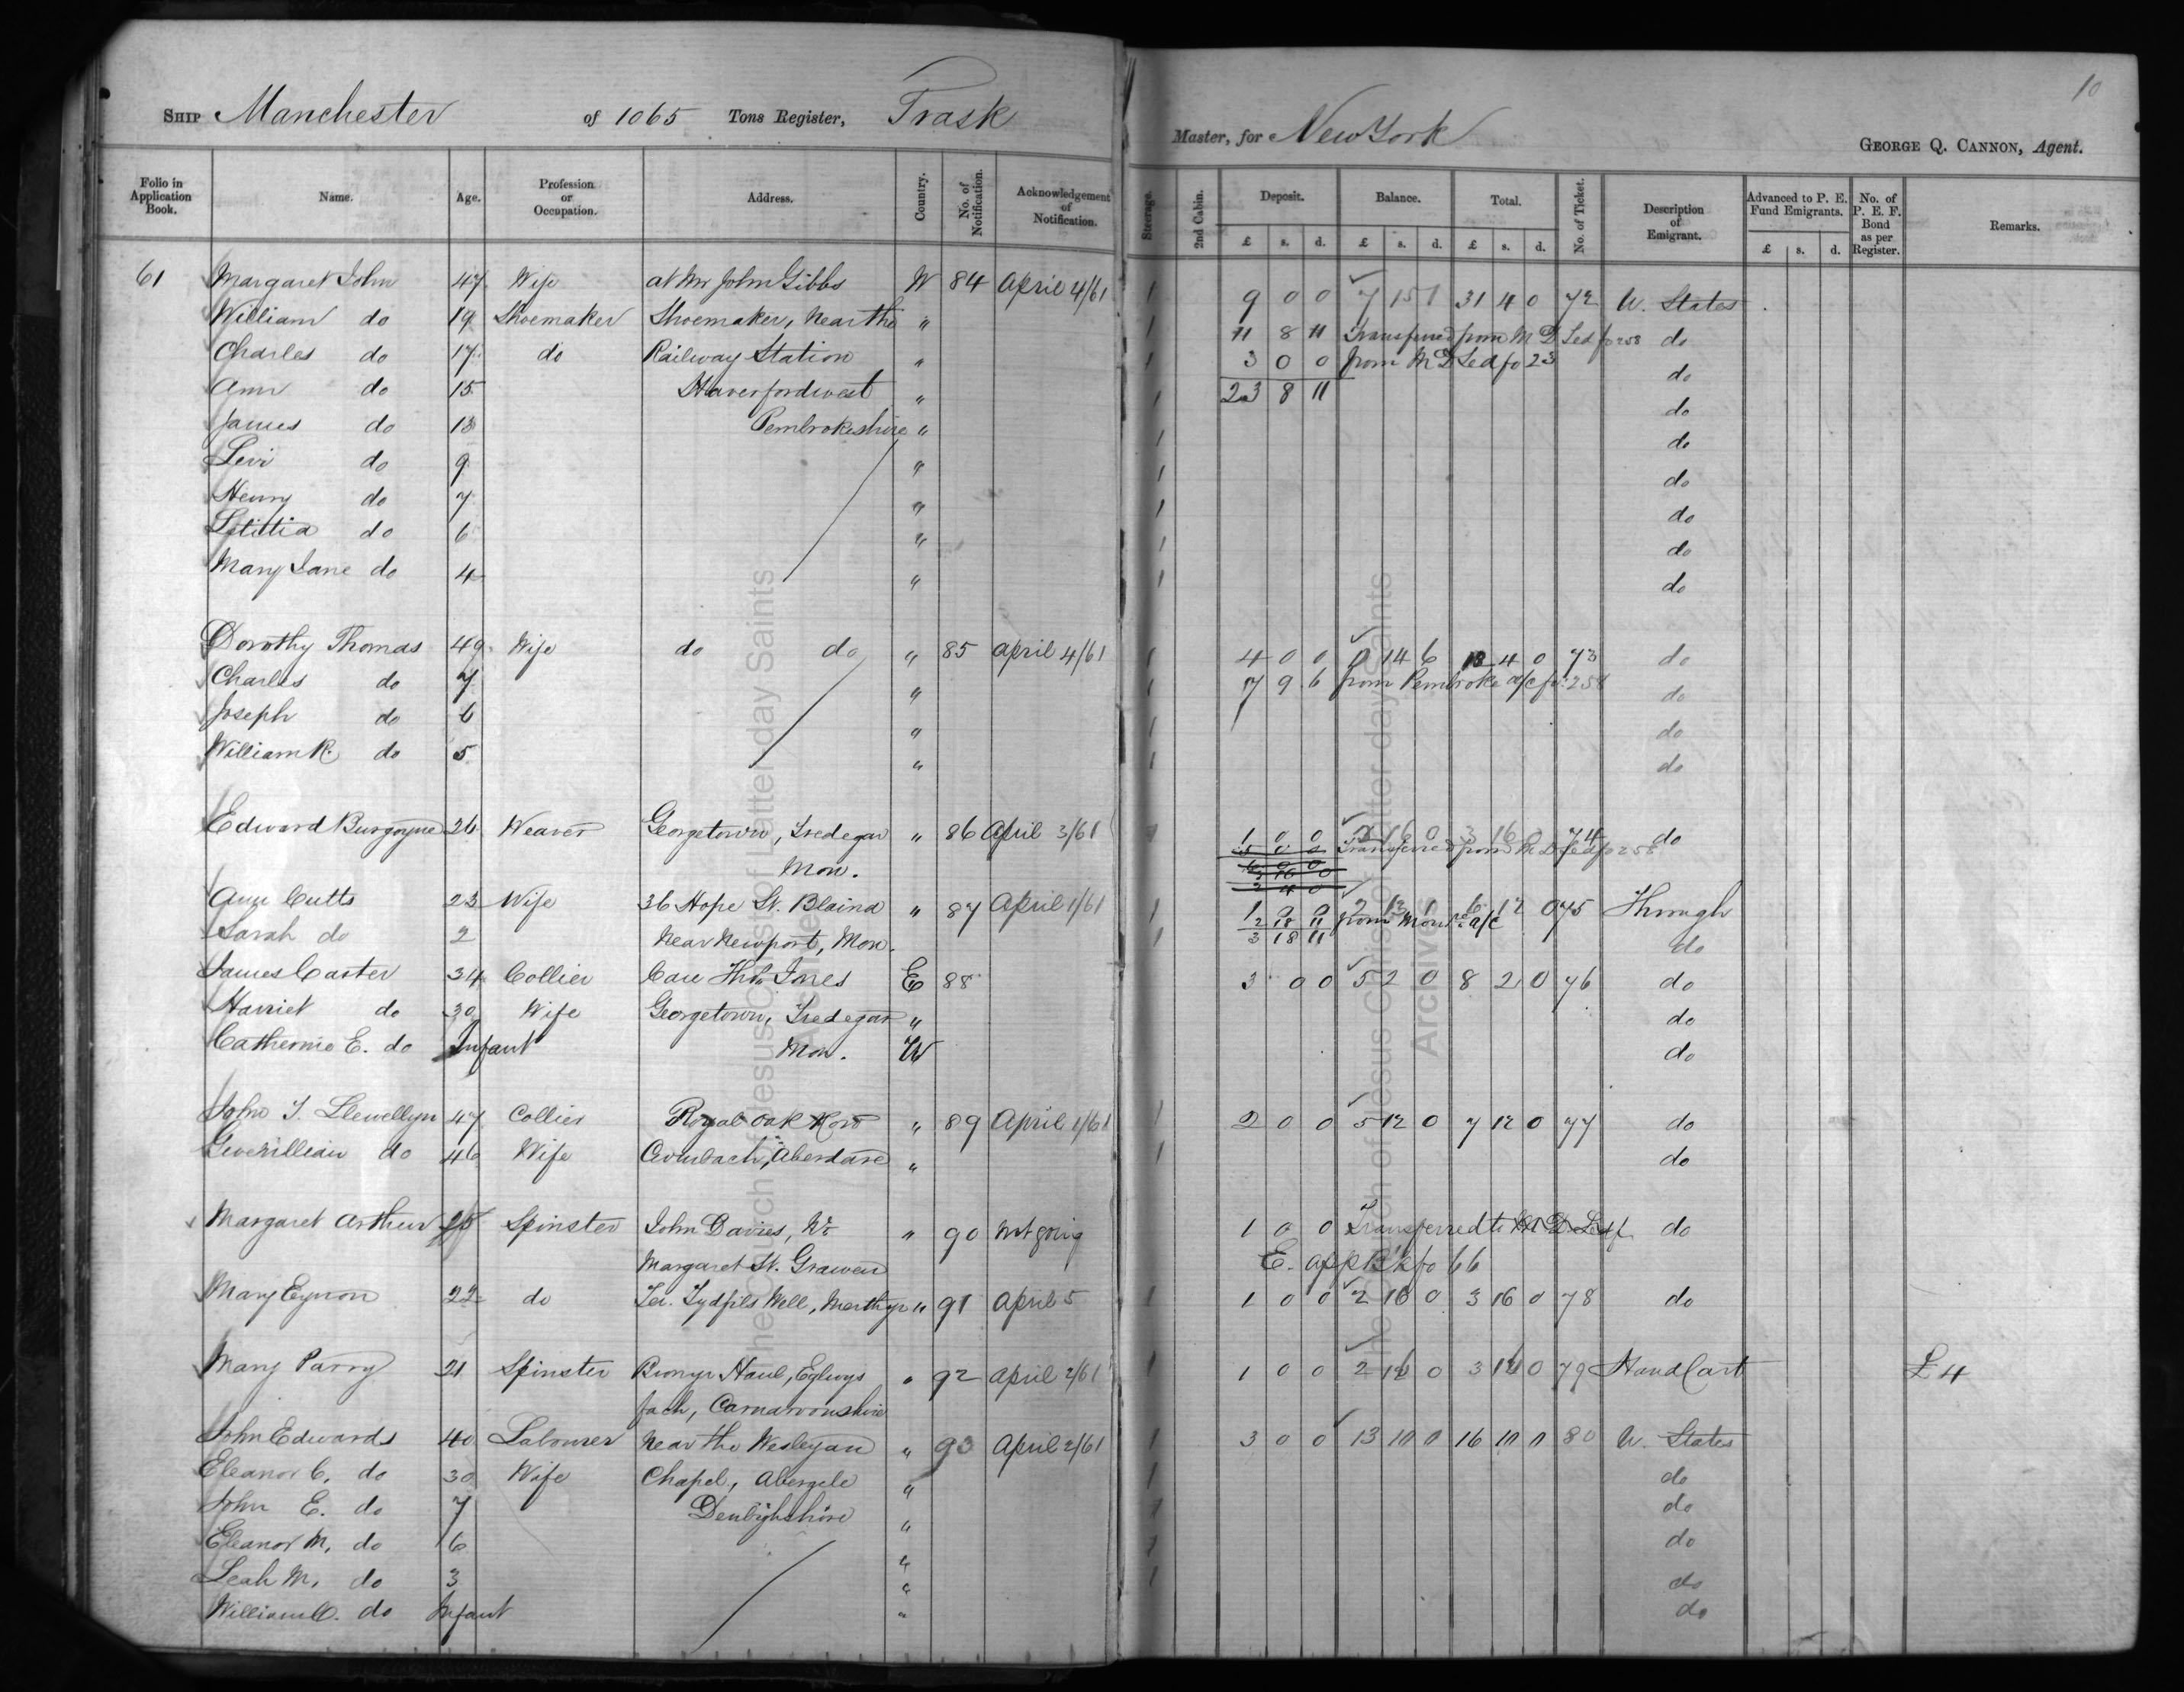 10
SHIP Manchester of 1065 Tons Register, Trask Master, for New York GEORGE Q. CANNON, Agent.
Folio in Application Book. Name. Age. Profession or Occupation. Address. Country. No. of Notification. Acknowledgement of Notification. Steerage. 2nd Cabin. Deposit. Balance. Total. No. of Ticket. Description of Emigrant. Advanced to P. E. Fund Emigrants. No. of P. E. F. Bond as per Register. Remarks.
£ s. d. £ s. d. £ s. d. £ s. d.
61 Margaret John 47 Wife at Mr John Gibbs W 84 April 4/61 1 9 0 0 7 15 1 31 4 0 72 U. States
William do 19 Shoemaker Shoemaker, Near the " 1 11 8 11 Transferred from M D Led fo 258 do
Charles do 17 do Railway Station " 1 3 0 0 from M D Led fo 23 do
Ann do 15 Haverfordwest " 1 23 8 11 do
James do 13 Pembrokeshire " 1 do
Levi do 9 " 1 do
Henry do 7 " 1 do
Letitia do 6 " 1 do
Mary Jane do 4 " 1 do
Dorothy Thomas 49 Wife do do " 85 April 4/61 1 4 0 0 0 14 6 12 4 0 73 do
Charles do 7 " 1 7 9 6 from Pembroke a/c fo 258 do
Joseph do 6 " 1 do
William R. do 5 " 1 do
Edward Burgoyne 26 Weaver Georgetown, Tredegar " 86 April 3/61 1 1 0 0 2 16 0 3 16 0 74 do
Mon. Transferred from M D Led fo 258
Ann Cutts 23 Wife 36 Hope St. Blaina " 87 April 1/61 1 1 0 0 2 13 1 6 12 0 75 Through
Sarah do 2 Near Newport, Mon. 1 2 18 11 from Mon a/c do
3 18 11
James Carter 34 Collier Care Thos Jones E 88 3 0 0 5 2 0 8 2 0 76 do
Harriet do 30 Wife Georgetown, Tredegar " do
Catherine E. do Infant Mon. W do
John T. Llewellyn 47 Collier Royal Oak Row " 89 April 1/61 1 2 0 0 5 12 0 7 12 0 77 do
Gwenllian do 46 Wife Cwmbach, Aberdare " 1 do
Margaret Arthur 25 Spinster John Davies, Wr " 90 Not going 1 0 0 Transferred to M D Led f do
Margaret St. Grawen E. app Bk fo 66
Mary Eynon 22 do Ter. Tydfils Well, Merthyr " 91 April 5 1 1 0 0 2 16 0 3 16 0 78 do
Mary Parry 21 Spinster Bronyr Haul, Eglwys " 92 April 2/61 1 1 0 0 2 12 0 3 12 0 79 Hand Cart £4
fach, Carnarvonshire
John Edwards 40 Labourer Near the Wesleyan " 93 April 2/61 1 3 0 0 13 10 0 16 10 0 80 U. States
Eleanor C. do 30 Wife Chapel, Abergele " 1 do
John E. do 7 Denbighshire " 1 do
Eleanor M. do 6 " 1 do
Leah M. do 3 " 1 do
William C. do Infant " do
The Church of Jesus Christ of Latter-day Saints
Archives